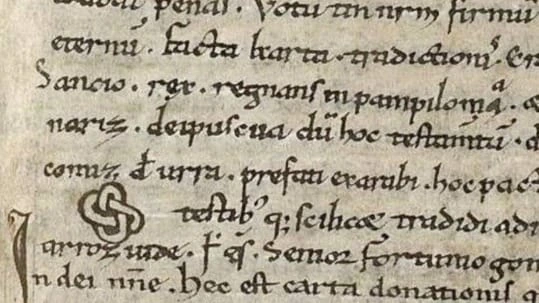 penas. Votu tm nrm firmū
eternū. Facta karta tradictionis. Er
Sancio. rex. regnans in pampilonia.
nariz. deipuscua dū hoc testamtū.
comiz đ urra. prefati exarabi. hoc pact
testib; q; scilicæ tradidi adi
arroz uide. Senior fortunio gon
In dei nñe. hec est carta donationis q